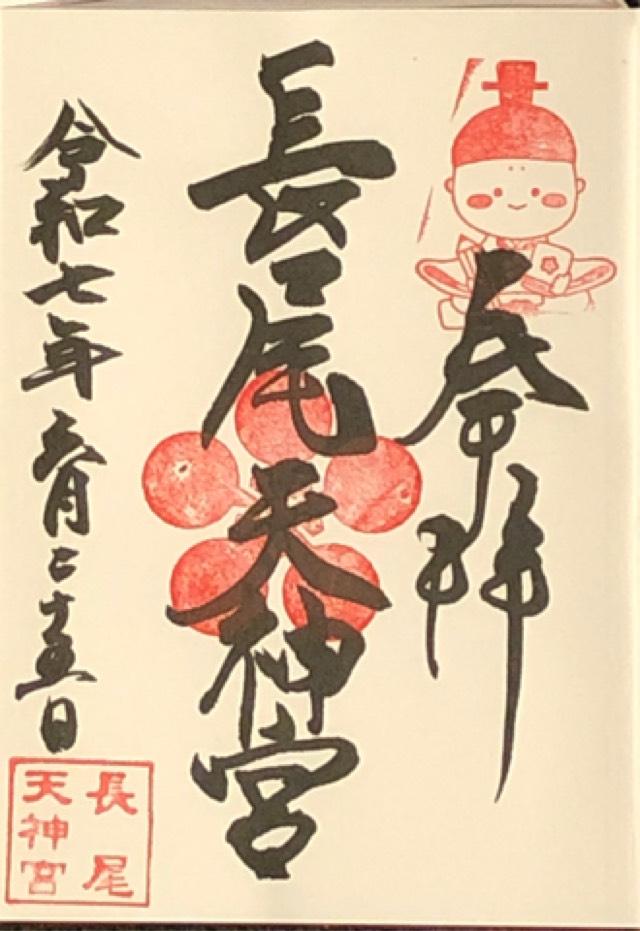 奉拝
長尾天神宮
令和七年六月二十五日
長尾
天神宮